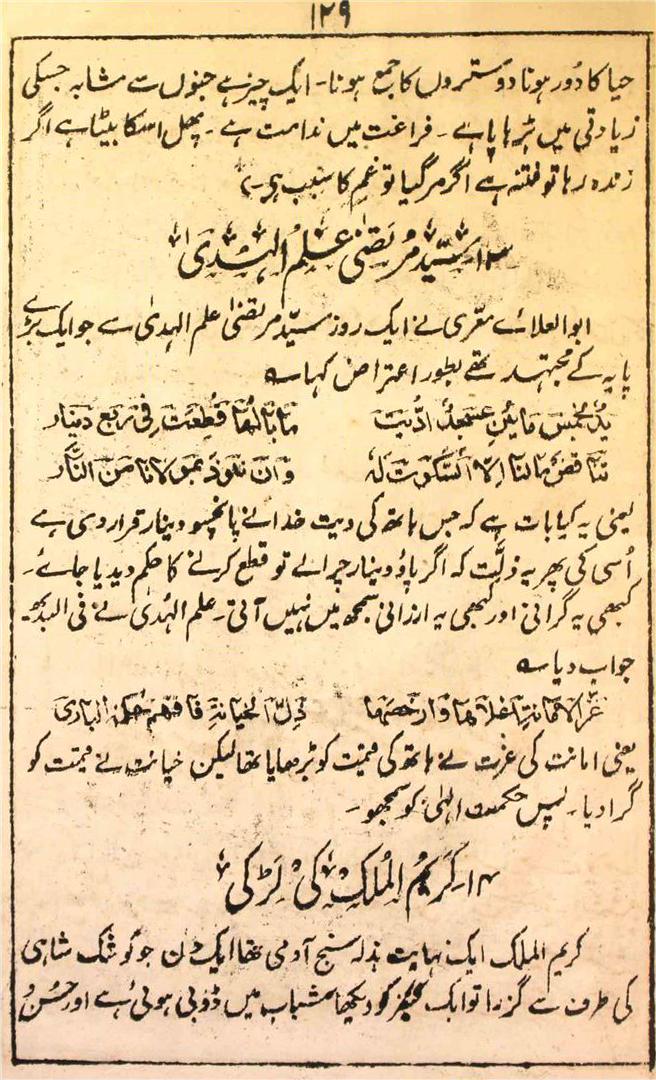 ۱۲۹
حیا کا دُور ہونا دو ستروں کا جمع ہونا۔ ایک چیز ہے جنوں سے مشابہ جسکی
زیادتی میں بڑہاپا ہے۔ فراغت میں ندامت ہے۔ پھل اسکا بیٹا ہے اگر
زندہ رہا تو فتنہ ہے اگر مر گیا تو غم کا سبب ہی۔
۱۳۔ سیّد مُرتضیٰ عَلَمُ الہُدیٰ
ابو العلائے معّری نے ایک روز سیّد مرتضیٰ علم الہدیٰ سے جو ایک بڑے
پایہ کے مجتہد تھے بطور اعتراض کہا ؎
یُدٌ بخمس مائین عسجدٌ ادّیت ما بالُھا قُطِعَت فِی رَبع دینار
تناقض مالنا اِلّا السّکوت لہٗ وَان نعوذ بمولانا مِن النّار
یعنی یہ کیا بات ہے کہ جس ہاتھ کی دیت خدا نے پانچسو دینار قرار دی ہے
اُسی کی پھر یہ ذلّت کہ اگر پاؤ دینار چرالے تو قطع کرنے کا حکم دیدیا جائے۔
کبھی یہ گرانی اور کبھی یہ ارزانی سمجھ میں نہیں آتی۔ علم الہُدیٰ نے فی البدیہہ
جواب دیا ؎
عَزّ الامانۃِ اغلاھا وارخصھا ذلّ الخیانۃِ فافھم حکمۃ الباری
یعنی امانت کی عزت نے ہاتھ کی قیمت کو بڑھایا تھا لیکن خیانت نے قیمت کو
گرا دیا۔ پس حکمت الٰہی کو سمجھو۔
۱۴۔ کریمُ المُلک کی لَڑکی
کریم الملک ایک نہایت بذلہ سنج آدمی تھا ایک دن جو کوشک شاہی
کی طرف سے گزرا تو ایک کنیز کو دیکھا شباب میں ڈوبی ہوئی ہے اور حُسن و